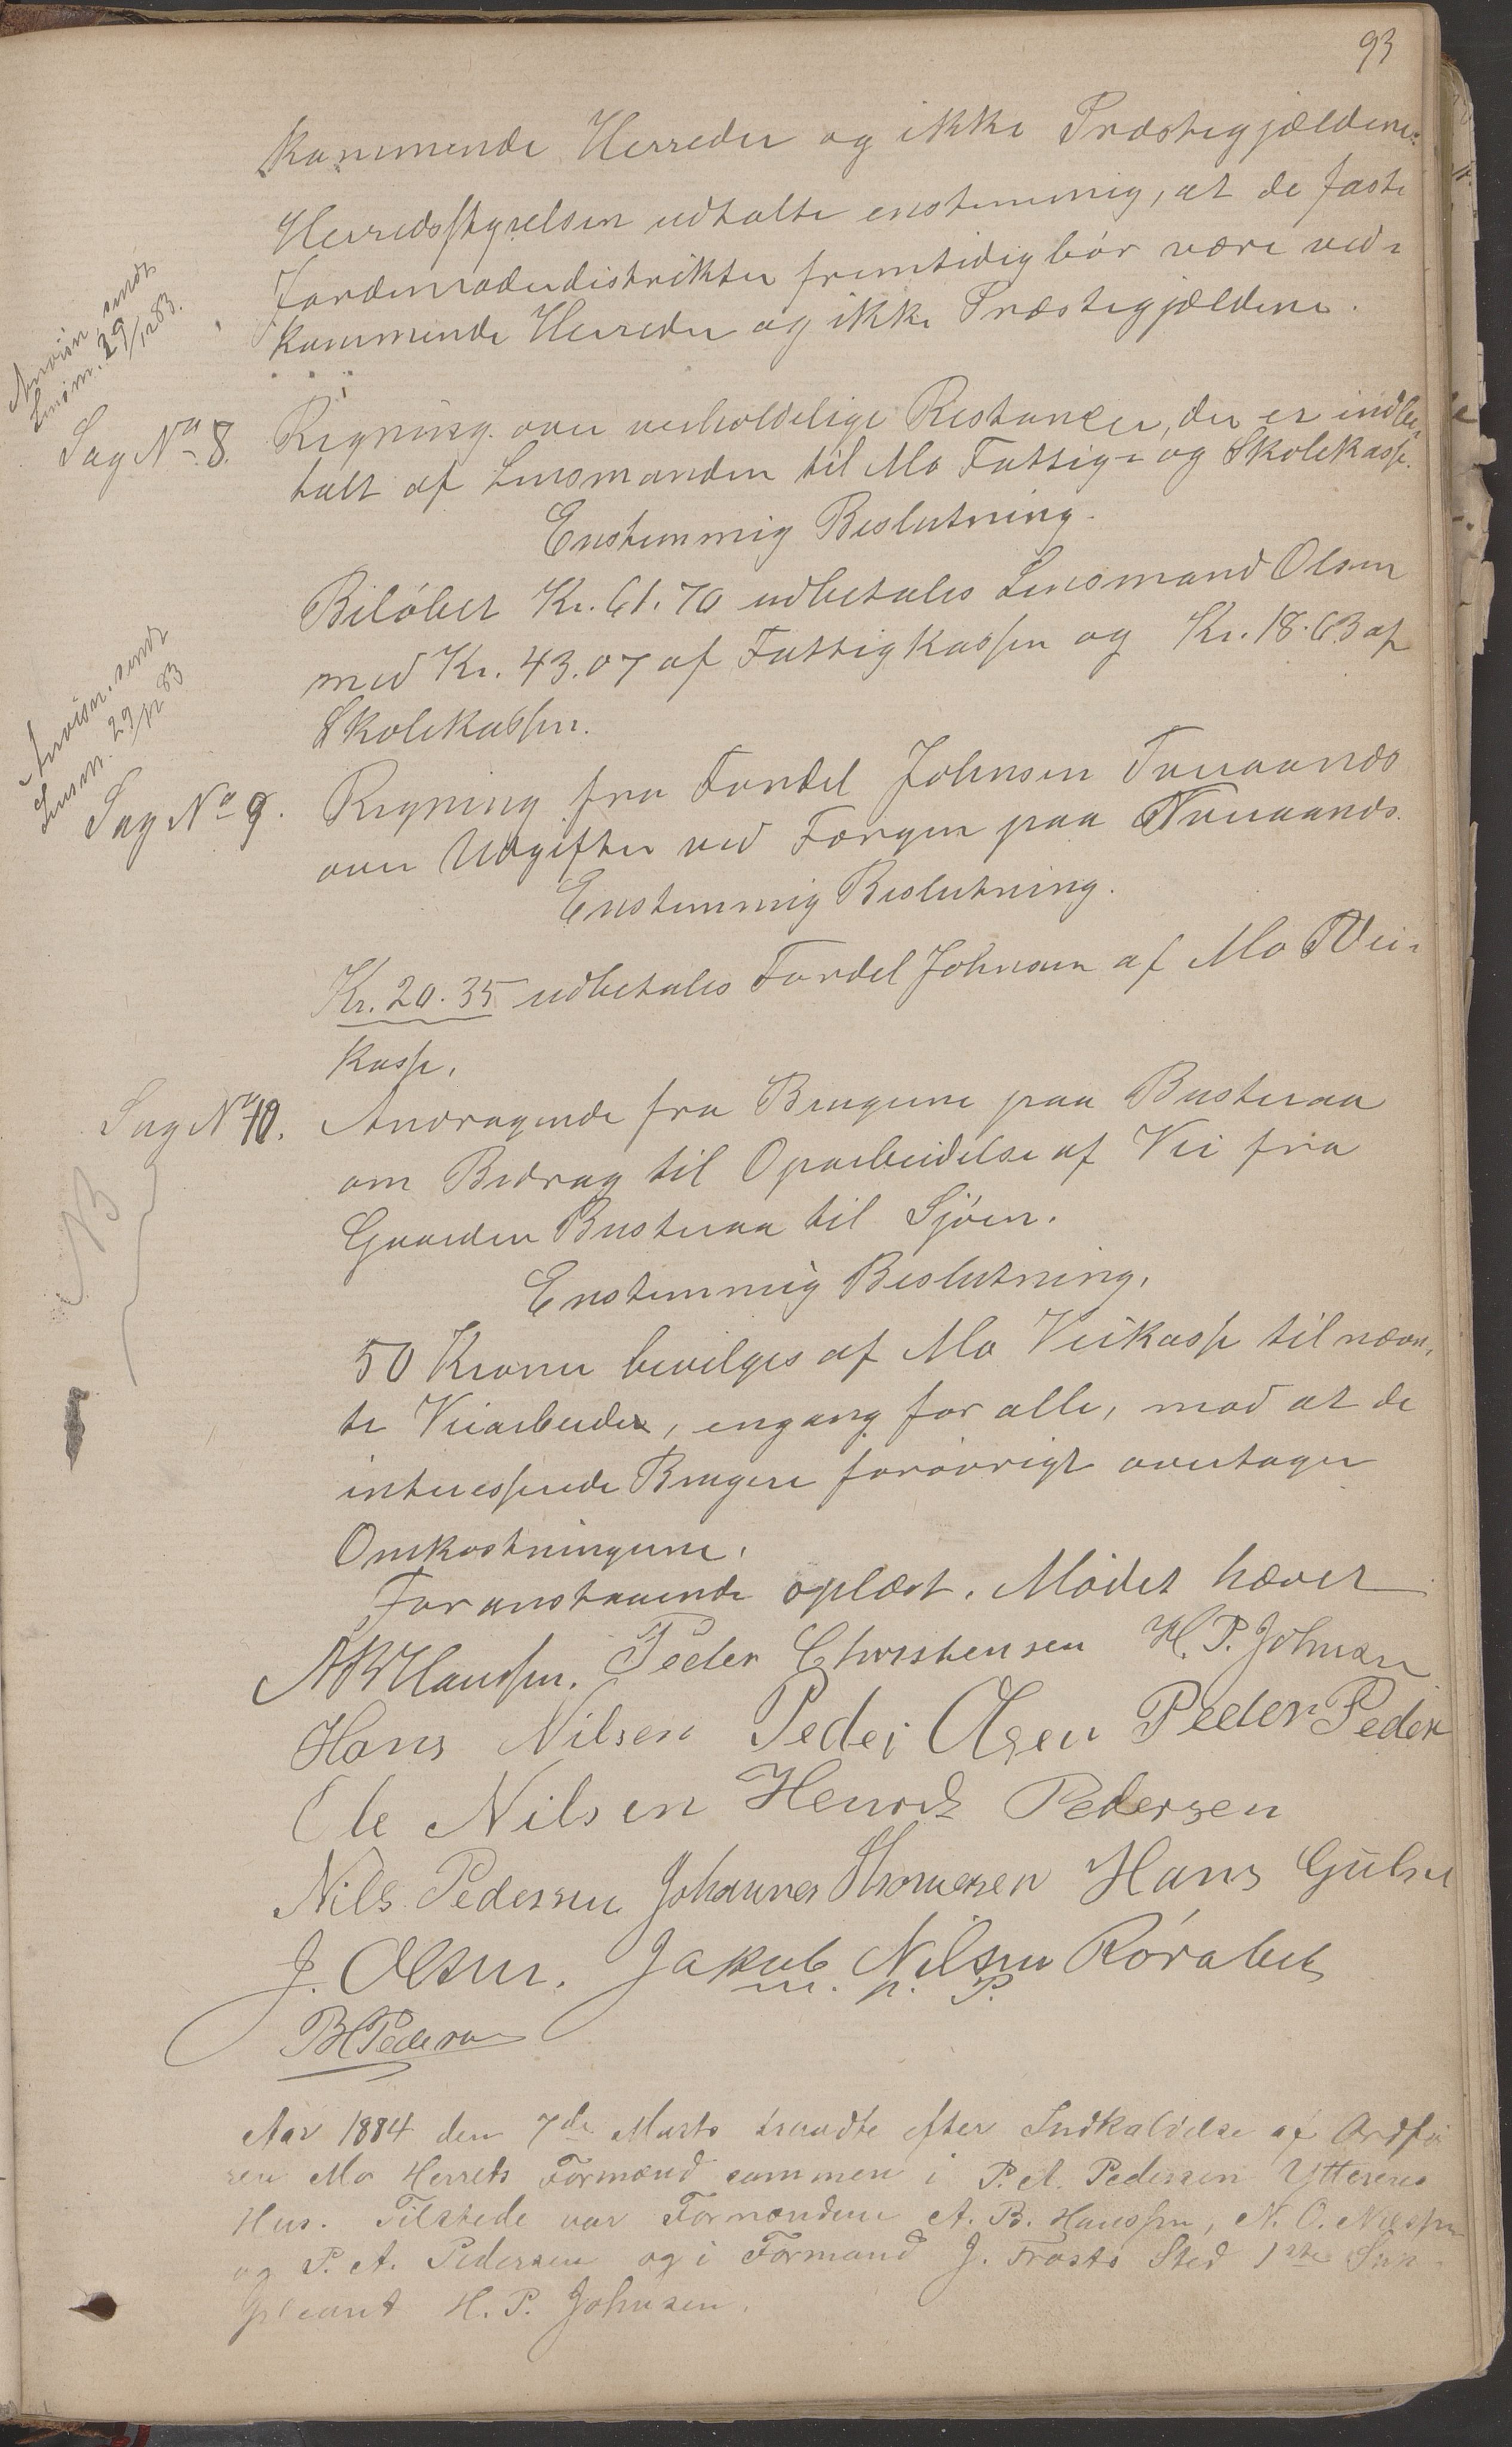 93
kommende Herreder og ikke Præstegjældene.
Herredsstyrelsen udtalte enstemmig, at de faste
Jordemoderdistrikter fremtidig bör være ved-
kommende Herreder og ikke Præstegjældene.
Anvisn. sendt
Lensm. 29/12 83.
Sag No 8. Regning over uerholdelige Restancer, der er indbe-
talt af Lensmanden til Mo Fattig- og Skolekasse.
Enstemmig Beslutning.
Belöbet Kr. 61.70 udbetales Lensmand Olsen
med Kr. 43.07 af Fattigkassen og Kr. 18.63 af
Skolekassen.
Anvisn. sendt
Lensm. 29/12 83
Sag No 9. Regning fra Fordel Johnsen Traaness
over Udgifter ved Færgen paa
Enstemmig Beslutning.
Kr. 20.35 udbetales Fordel Johnsen af Mo Vei-
kasse.
Sag No 10. Andragende fra Brugerne paa Busteraa
om Bidrag til Oparbeidelse af Vei fra
Gaarden Busteraa til Sjöen.
NB
Enstemmig Beslutning.
50 Kroner bevilges af Mo Veikasse til nævn-
te Veiarbeide, engang for alle, mod at de
interesserede Brugere forövrigt overtager
Omkostningerne.
Foranstaaende oplæst. Mödet hævet
A B Hanssen. Peder Christensen H. P. Johnsen
Hans Nilsen Peder Olsen Peder Peder
Ole Nilsen Henrik Pedersen
Nils Pedersen Johannes Thomesen Hans Gulse
J. Olsen. Jakob Nilsen Röraberg
m. p. P.
B H Pedersen
Aar 1884 den 7de Marts traadte efter Indkaldelse af Ordfö
ren Mo Herreds Formænd sammen i P. A. Pedersen Ytterens
Hus. Tilstede var Formændene A. B. Hanssen, N. O. Nilssen
og P. A. Pedersen og i Formand J. Frosts Sted 1ste Sup-
pleant H. P. Johnsen.